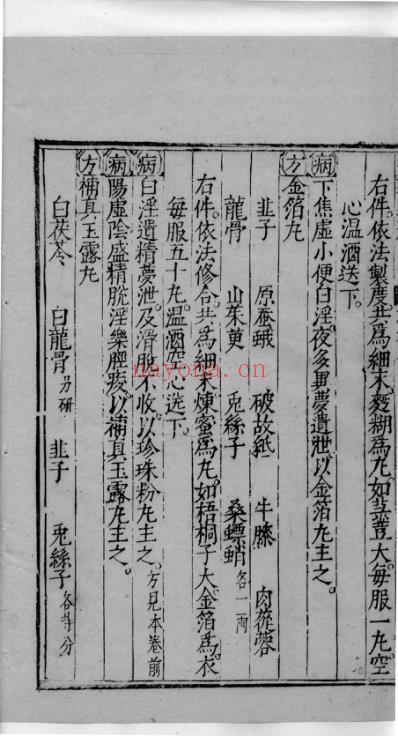 右件。依法製度共爲細末。麪糊爲丸如芡實大。每服一丸空
心温酒送下。
病下焦虛小便白淫。夜多異夢遺泄。以金箔丸主之。
方金箔丸
韭子 原蚕蛾 破故紙 牛膝 肉蓯蓉
龍骨 山茱萸 兎絲子 桑螵蛸各一兩
右件。依法修合共爲細末煉蜜爲丸。如梧桐子大金箔爲衣
每服五十丸。温酒空心送下。
病白淫遺精夢泄。及滑脫不收。以珍珠粉丸主之。方見本卷前
病陽虛陰盛精脫淫濼脛痠以補真玉露丸主之。
方補真玉露丸
白茯苓 白龍骨另研 韭子 兎絲子各等分
nayona.cn